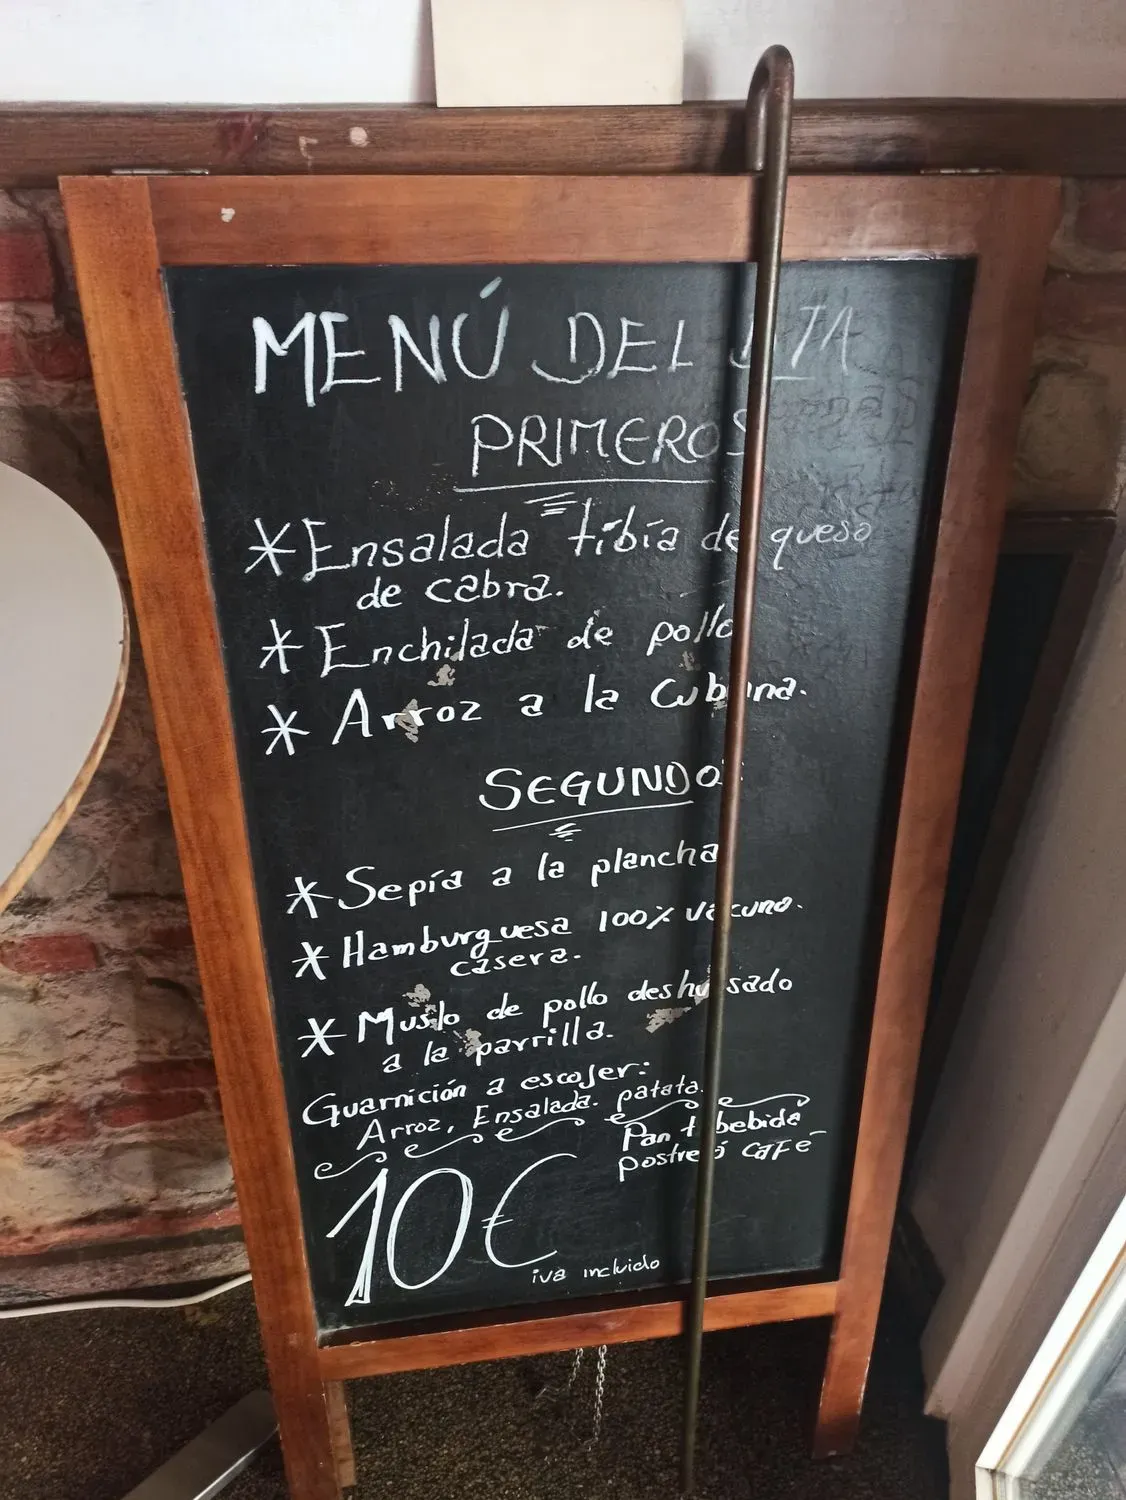 MENÚ DEL DIA
PRIMEROS
* Ensalada tibia de queso
de cabra.
* Enchilada de pollo
* Arroz a la Cubana.
SEGUNDOS
* Sepía a la plancha
* Hamburguesa 100% vacuno.
casera.
* Muslo de pollo deshuesado
a la parrilla.
Guarnición a escojer:
Arroz, Ensalada. patata.
Pan + bebida
postre ó café
10€
iva incluido